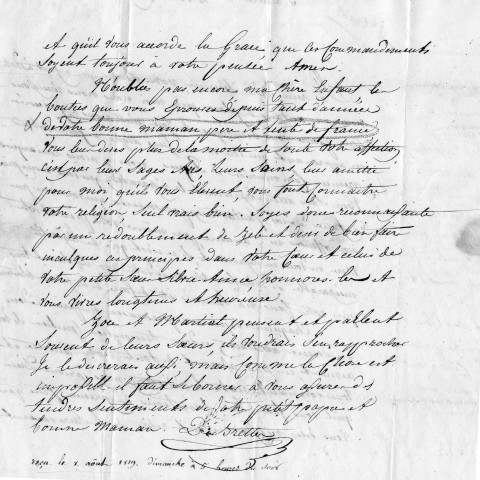 et qu'il vous accorde la Grace que ces Commandements
soyent toujours à votre pensée Amen.
N'oubliez pas encore ma chère Enfant les
bontées que vous Eprouvez depuis tant d'année
de votre bonne maman père et tante de france
vous leur devez plus de la moitié de toute votre affection
c'est par leurs Sages Avis, leurs Soins, leur amitié
pour moi qu'ils vous Elevent, vous font Connaitre
votre religion, seul vrais bien, Soyez donc reconnaissante
par un redoublement de Zele et desir de bien faire
inculquez ces principes dans votre Cœur et celui de
votre petite Sœur chere Amie honorez les et
vous vivrez longtems et heureuse
Zoe et Martial pensent et parlent
Souvent de leurs Sœurs ils voudrais s'en rapprocher
Je le desirerais aussi, mais Comme la Chose est
impossible il faut se borner à vous assurer des
tendres Sentiments de votre petit papa et
bonne Maman.
reçu le 1. août 1819. dimanche à 5 heures du soir